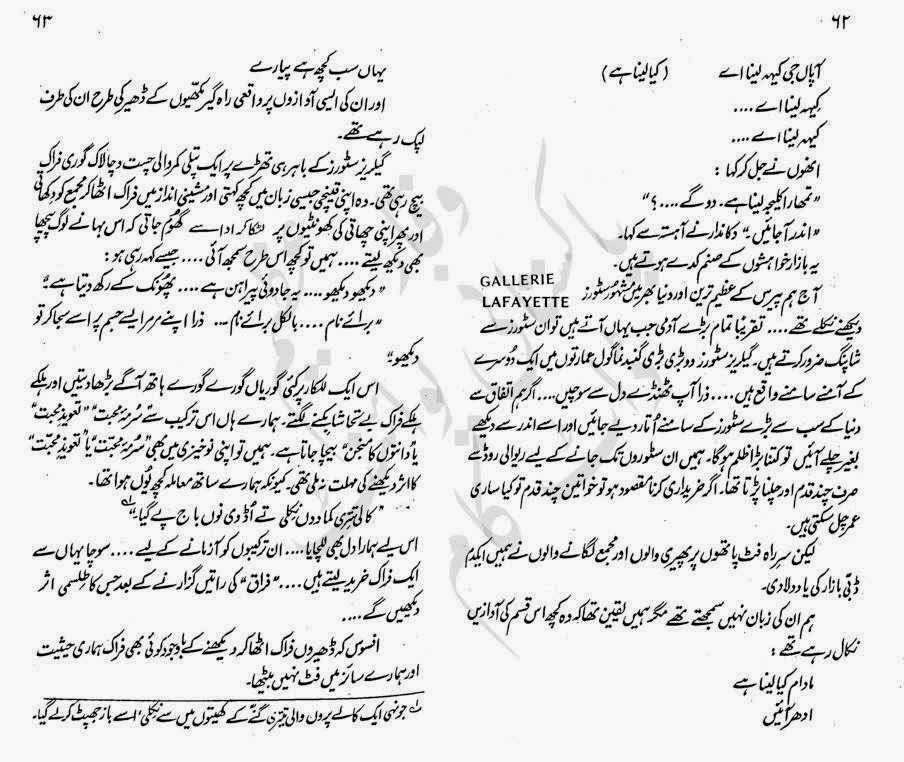 ۶۲
آپاں جی کیہہ لینا اے (کیا لینا ہے)
کیہہ لینا اے ....
کیہہ لینا اے ....
انھوں نے جل کر کہا :
"تمھارا کلیجہ لینا ہے۔ دو گے ....؟"
"اندر آ جائیں۔" دکاندار نے آہستہ سے کہا۔
یہ بازار خواہشوں کے صنم کدے ہوتے ہیں۔
آج ہم پیرس کے عظیم ترین اور دنیا بھر میں مشہور سٹورز GALLERIE LAFAYETTE
دیکھنے نکلے تھے .... تقریباً تمام بڑے آدمی جب یہاں آتے ہیں تو ان سٹورز سے
شاپنگ ضرور کرتے ہیں۔ گیلریز سٹورز دو بڑی بڑی گنبد نما گول عمارتوں میں ایک دوسرے
کے آمنے سامنے واقع ہیں .... ذرا آپ ٹھنڈے دل سے سوچیں .... اگر ہم اتفاق سے
دنیا کے سب سے بڑے سٹورز کے سامنے اُتار دیے جائیں اور اسے اندر سے دیکھے
بغیر چلے آئیں تو کتنا بڑا ظلم ہو گا۔ ہمیں ان سٹوروں تک جانے کے لیے ریوالی روڈ سے
صرف چند قدم اور چلنا پڑتا تھا۔ اگر خریداری کرنا مقصود ہو تو خواتین چند قدم تو کیا ساری
عمر چل سکتی ہیں۔
لیکن سرِ راہ فٹ پاتھوں پر پھیری والوں اور مجمع لگانے والوں نے ہمیں ایکدم
ڈبی بازار کی یاد دلا دی۔
ہم ان کی زبان نہیں سمجھتے تھے مگر ہمیں یقین تھا کہ وہ کچھ اس قسم کی آوازیں
نکال رہے تھے :
مادام کیا لینا ہے
ادھر آئیں
۶۳
یہاں سب کچھ ہے پیارے
اور ان کی ایسی آوازوں پر واقعی راہ گیر مکھیوں کے ڈھیر کی طرح ان کی طرف
لپک رہے تھے۔
گیلریز سٹورز کے باہر ہی تھڑے پر ایک پتلی کمر والی چست و چالاک گوری فراک
بیچ رہی تھی۔ وہ اپنی قینچی جیسی زبان میں کچھ کہتی اور مشینی انداز میں فراک اٹھا کر مجمع کو دکھاتی
اور پھر اپنی چھاتی کی کھونٹیوں پر لٹکا کر ادا سے گھوم جاتی کہ اس بہانے لوگ پیچھا
بھی دیکھ لیتے .... ہمیں تو کچھ اس طرح سمجھ آئی .... جیسے کہہ رہی ہو :
"دیکھو دیکھو .... یہ جادوئی پیراہن ہے .... پھونک کے رکھ دیتا ہے"
"برائے نام .... بالکل برائے نام .... ذرا اپنے مرمر ایسے جسم پر اسے سجا کر تو
دیکھو"
اس ایک للکار پر کئی گوریاں گورے گورے ہاتھ آگے بڑھا دیتیں اور ہلکے
ہلکے فراک بے تحاشا بکنے لگتے۔ ہمارے ہاں اس ترکیب سے "سُرمۂ محبت" "تعویذِ محبت"
یا دانتوں کا منجن بیچا جاتا ہے۔ ہمیں تو اپنی نوخیزی میں بھی "سُرمۂ محبت" یا "تعویذِ محبت"
کا اثر دیکھنے کی مہلت نہ ملی تھی۔ کیونکہ ہمارے ساتھ معاملہ کچھ یوں ہوا تھا۔
"کالی تتری کماددوں نکلی تے اُڈدی نوں باج پے گیا۔"؂۱
اس لیے ہمارا دل بھی للچایا .... ان ترکیبوں کو آزمانے کے لیے .... سوچا یہاں سے
ایک فراک خرید لیتے ہیں .... "فراق" کی راتیں گزارنے کے بعد جس کا طلسمی اثر
دیکھیں گے ....
افسوس کہ ڈھیروں فراک اٹھا کر دیکھنے کے باوجود کوئی بھی فراک ہماری حیثیت
اور ہمارے سائز میں فٹ نہیں بیٹھا۔
؂۱ جونہی ایک کالے پروں والی تیتری گنے کے کھیتوں میں سے نکلی، اسے باز جھپٹ کر لے گیا۔